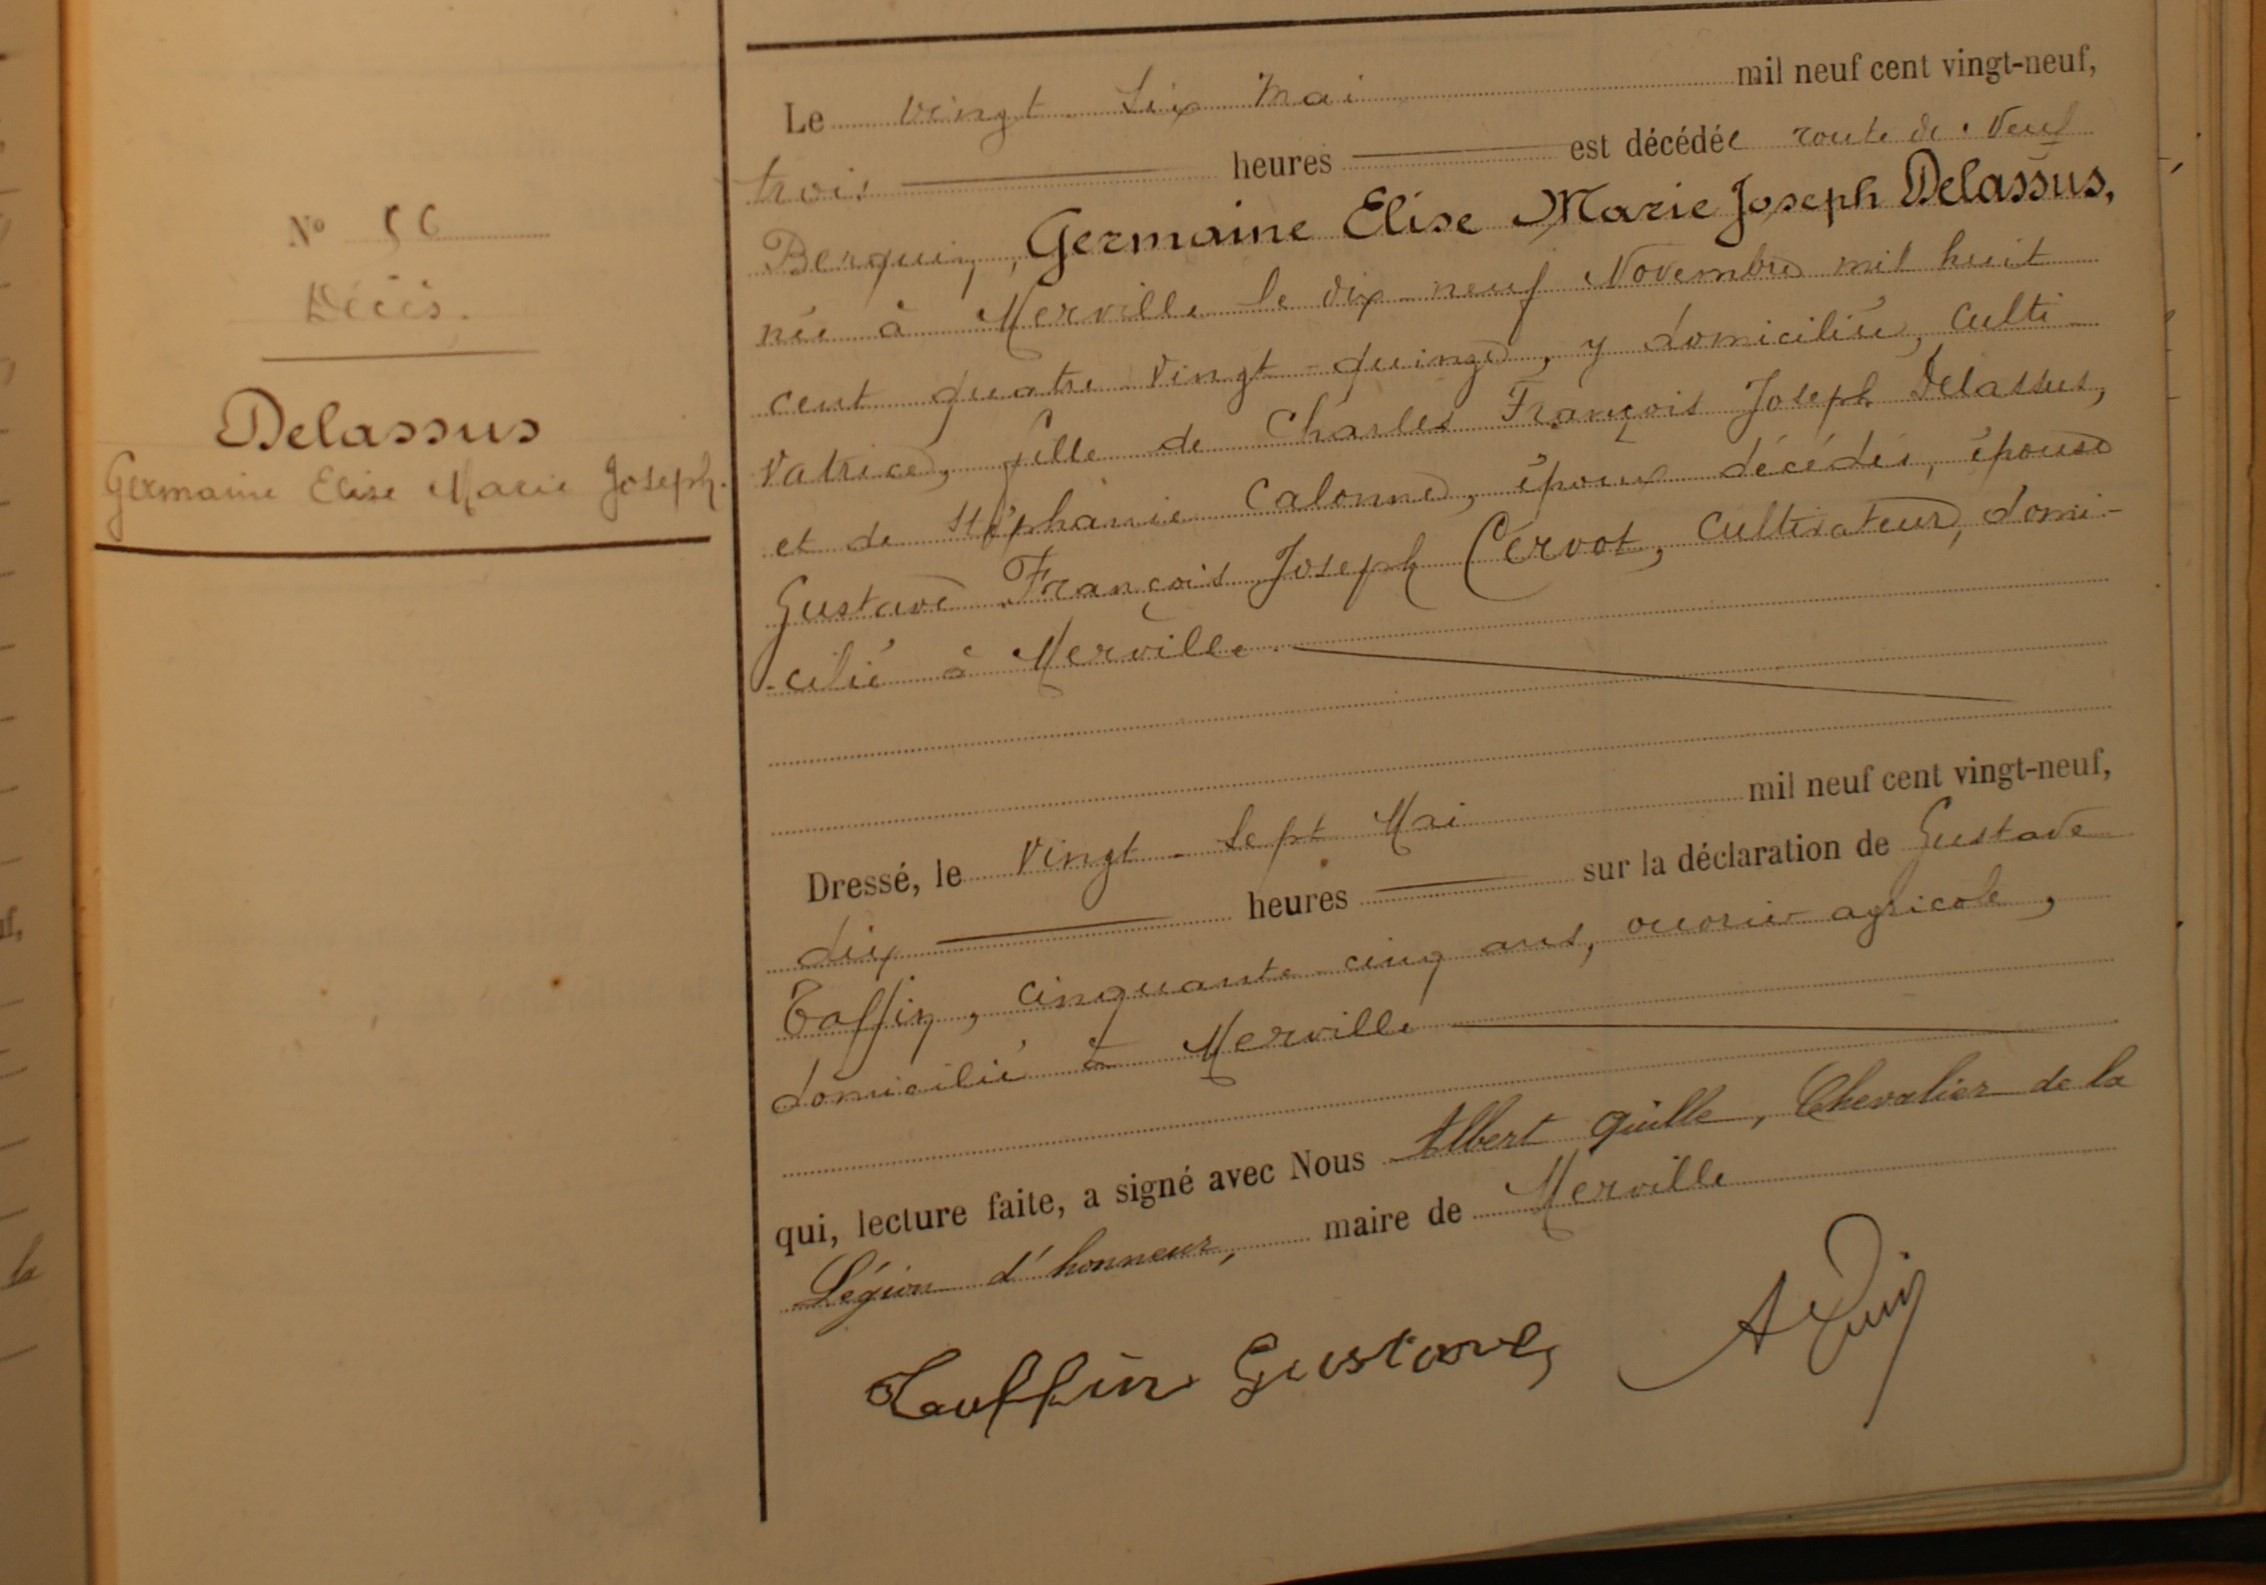 N° 56
Décès.
Delassus
Germaine Elise Marie Joseph.
Le vingt-six Mai mil neuf cent vingt-neuf,
trois heures est décédée route de Neuf
Berquin, Germaine Elise Marie Joseph Delassus,
née à Merville le dix-neuf Novembre mil huit
cent quatre vingt-quinze, y domiciliée, culti-
vatrice, fille de Charles François Joseph Delassus,
et de Stéphanie Calonne, époux décédés, épouse
Gustave François Joseph Cervot, cultivateur, domi-
-cilié à Merville.
Dressé, le vingt-sept Mai mil neuf cent vingt-neuf,
dix heures sur la déclaration de Gustave
Taffin, cinquante-cinq ans, ouvrier agricole,
domicilié à Merville
qui, lecture faite, a signé avec Nous Albert Quille, Chevalier de la
Légion d'honneur, maire de Merville
Tauffin Gustave